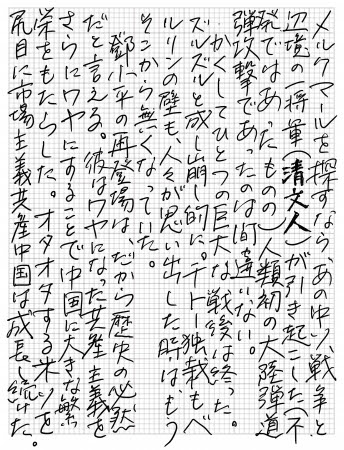 メルクマールを探すなら、あの中ソ戦争と
辺境の一将軍(清文人)が引き起こした(不
発ではあったものの)人類初の大陸弾道
弾攻撃であったのは間違いない。
かくしてひとつの巨大な「戦後」は終った。
ズルズルと成し崩し的に。チトー独裁もベ
ルリンの壁も、人々が思い出した時は、もう
そこから無くなっていた。
鄧小平の再登場は、だから歴史の必然
だと言える。彼はワヤになった共産主義を
さらにワヤにすることで中国に大きな繁
栄をもたらした。オタオタする米ソを
尻目に市場主義共産中国は成長し続けた。